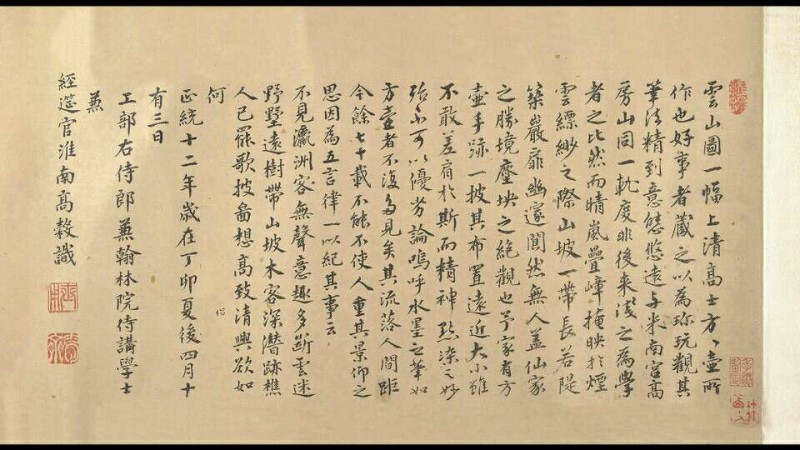 雲山圖一幅上清高士方〻壺所
作也好事者藏之以為珍玩觀其
筆法精到意態悠遠与米南宮高
房山同一軌度非後来淺之為學
者之比然而晴嵐疊嶂掩映於煙
雲縹緲之際山坡一帶長若隄
築巖扉幽邃闃然無人蓋仙家
之勝境塵埃之絕觀也予家有方
壺手跡一披其布置遠近大小雖
不敢差肩於斯而精神點染之妙
殆不可以優劣論嗚呼水墨之華如
方壺者不復多見矣其流落人間距
今餘七十載不能不使人重其景仰之
思因為五言律一以紀其事云
不見瀛洲客無聲意趣多斷雲迷
野墅遠樹帶山坡木客深潛跡樵
人已罷歌披啚想高致清興欲如
何
正統十二年歲在丁卯夏後四月十
有三日
工部右侍郎兼翰林院侍講學士
兼
經筵官淮南高穀識